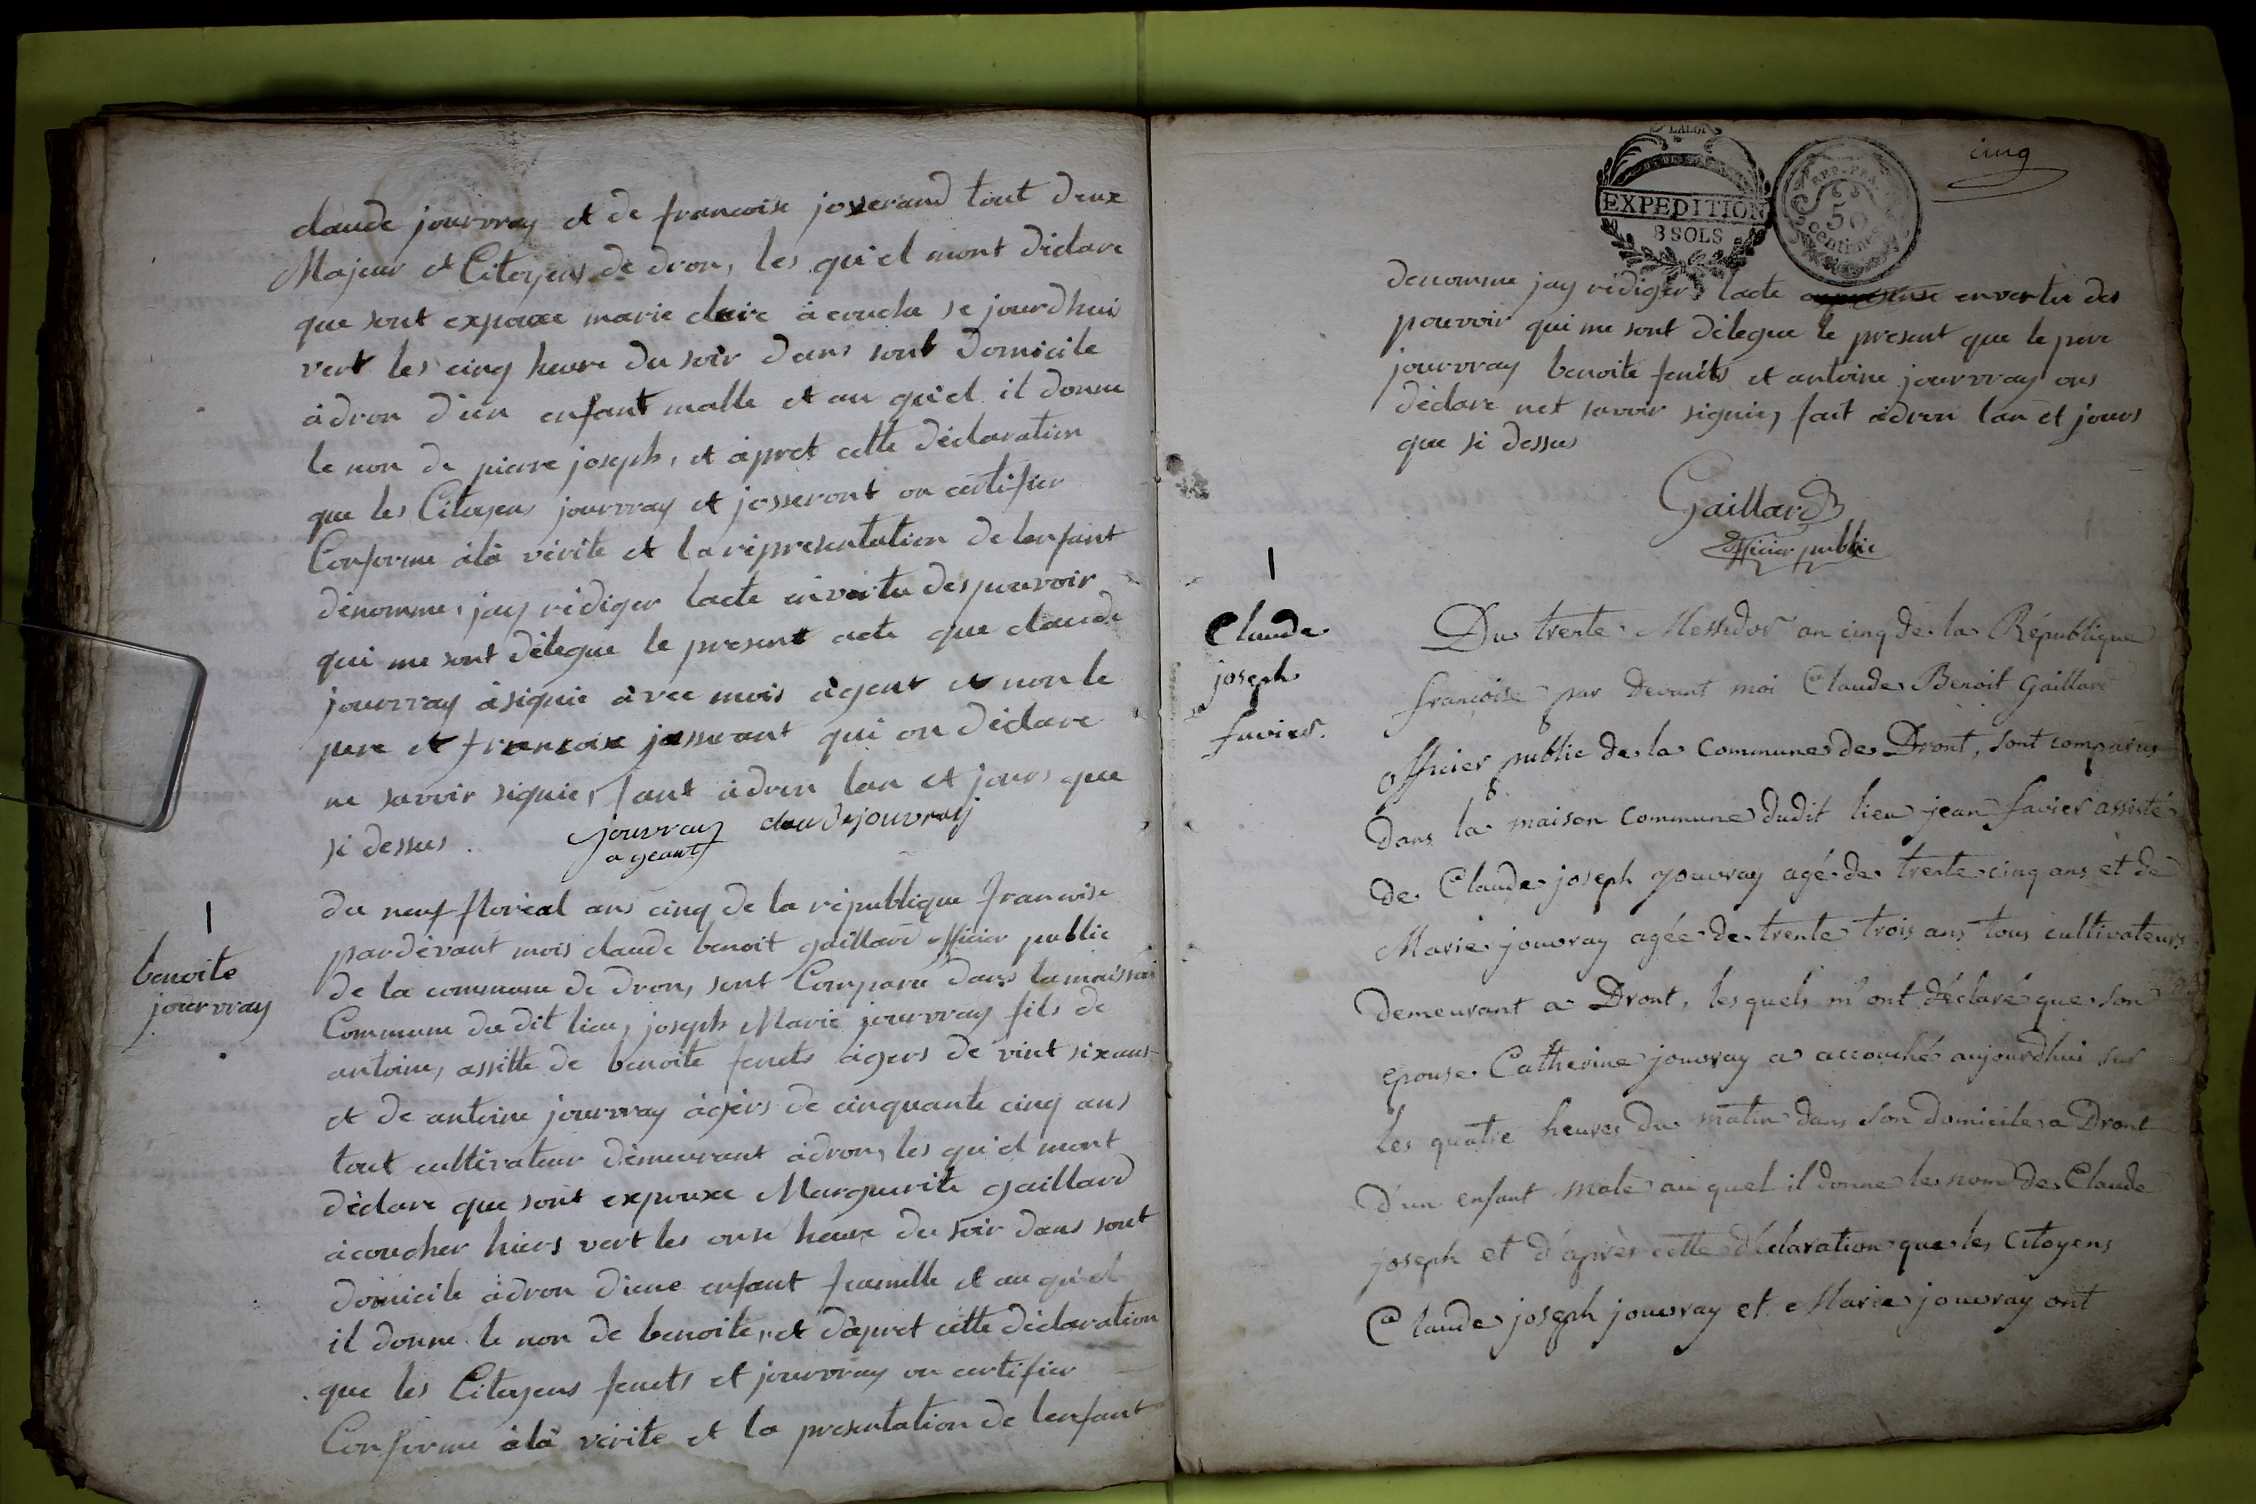 claude jouvray et de francoise josserand tout deux
Majeur et Citoyens de dron, les qu'el mont déclare
que sont expouxe marie claire à couche se jourdhui
vert les cinq heure du soir dans sont domicile
à dron d'un enfant malle et au qu'el il donne
le non de pierre joseph, et àpret cette déclaration
que les Citoyens jouvray et josseront on certifier
Conforme àlà vérite et la répresentation de lenfant
dénomme, jay rédiger lacte en vertu des pouvoir
qui me sont délegue le present acte que claude
jouvray àsignie àvec mois àgent et non le
pere et francoise josserant qui on déclare
ne savoir signie, faut àdron lan et jours que
si dessus.
jouvray claudejouvray
ageant
1
benoite
jouvray
du neuf floréal ans cinq de la république francoise
pardévant mois claude benoit gaillard officier public
de la commune de dron, sont Comparu dans la maisson
Commune du dit lieu, joseph Marie jouvray fils de
antoine, assitte de benoite fenets àgers de vint six ans
et de antoine jouvray àgérs de cinquante cinq ans
tout cultivateur démeurant àdron, les qu'el mont
déclare que sont expouxe Marguerite gaillard
àcoucher hiers vert les onse heure du soir dans sont
domicile àdron d'une enfant feumelle et au qu'el
il donne le non de benoite, et d'àpret cette déclaration
que les Citoyens fenets et jouvray on certifier
Conforme àlà vérite et la presentation de lenfant
LALOI
EXPEDITION
8 SOLS
REP. FRA.
50
centimes
cinq
denomme jay rédiger lacte en vertu des
pouvoir qui me sont délegue le present que le pere
jouvray benoite fenets et antoine jouvray ons
déclare net savoir signie, fait àdron lan et jours
que si dessus
Gaillard
officier public
1
Claude
joseph
favier.
Du trente Messidor an cinq de la République
françoise par devant moi Claude Benoit Gaillard
officier public de la commune de Dront, sont comparus
dans la maison commune dudit lieu jean favier assisté
de Claude joseph jouvray agé de trente cinq ans et de
Marie jouvray agée de trente trois ans tous cultivateurs
demeurant a Dront, lesquels m'ont déclaré que son
epouse Catherine jouvray a accouché aujourdhui sur
les quatre heures du matin dans son domicile a Dront
d'un enfant male au quel il donne le nom de Claude
joseph et d'après cette déclaration que les citoyens
Claude joseph jouvray et Marie jouvray ont